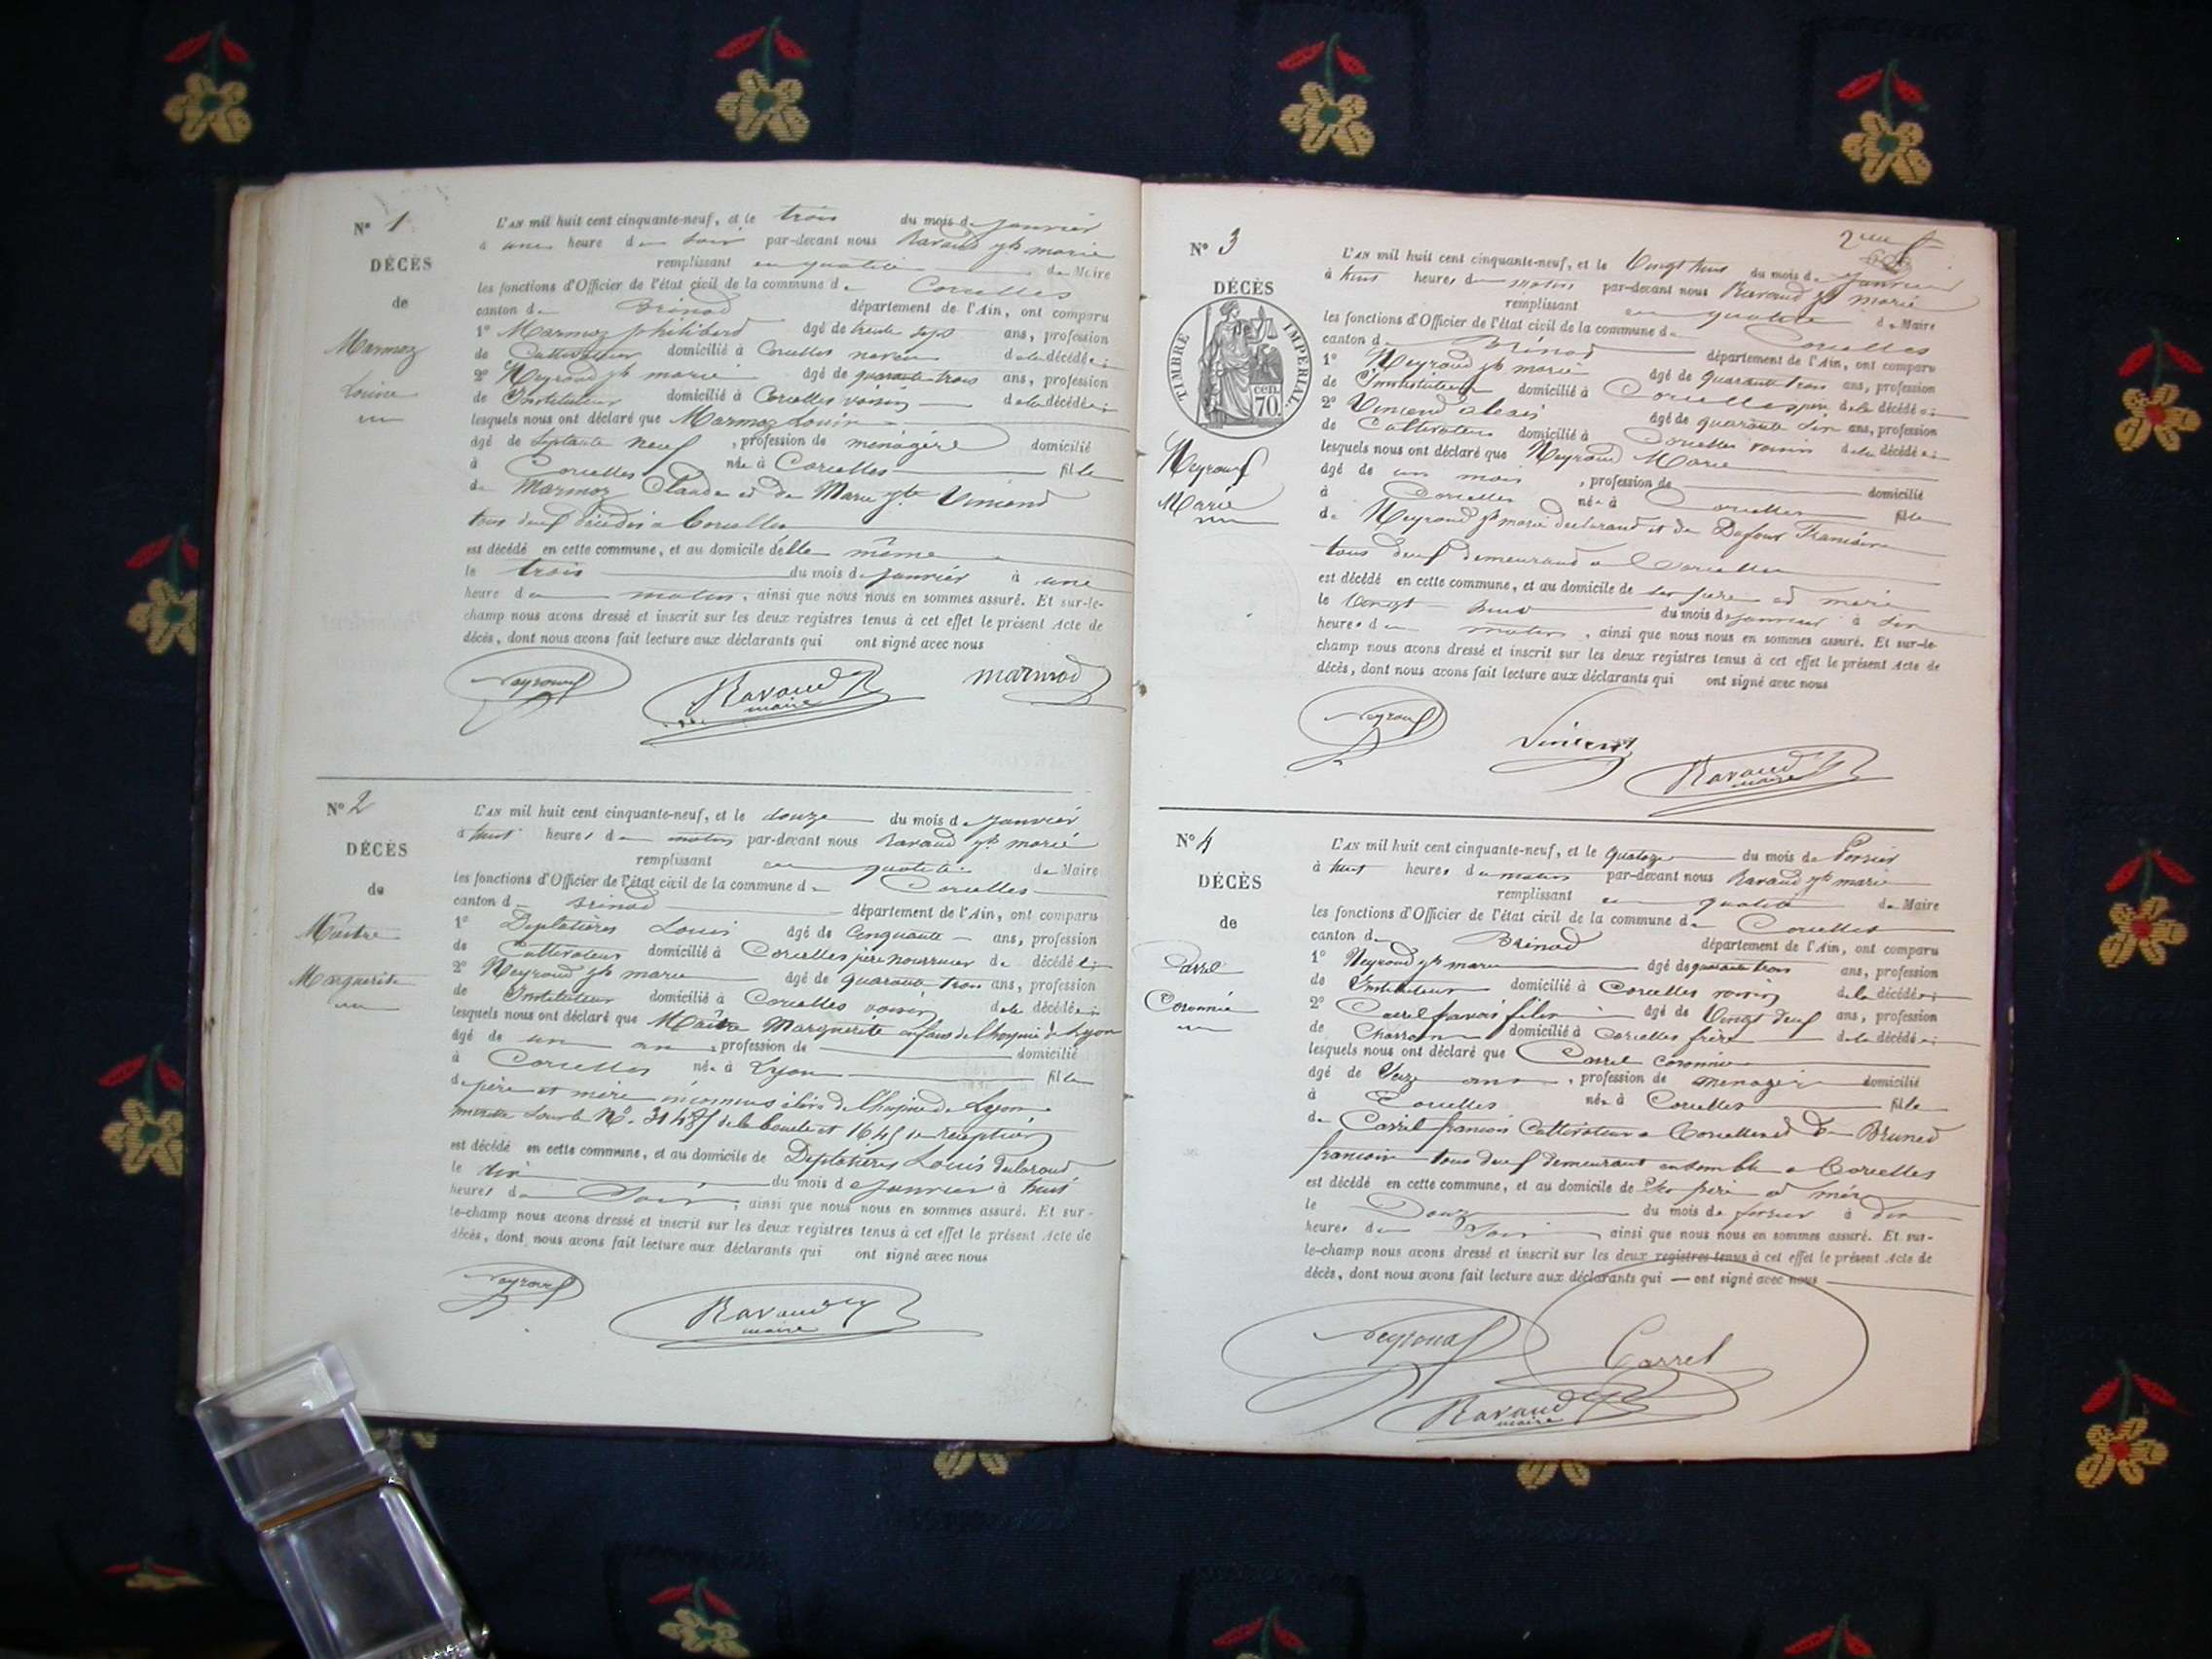 N° 1
DÉCÈS
de
Marmoz
Louise
L'AN mil huit cent cinquante-neuf, et le trois du mois de janvier
à une heure du soir par-devant nous Ravaud jh marie
remplissant en qualité de Maire
les fonctions d'Officier de l'état civil de la commune de Corcelles
canton de Brénod département de l'Ain, ont comparu
1° Marmoz philibert âgé de trente sept ans, profession
de Cultivateur domicilié à Corcelles neveu de la décédée
2° Neyroud jh marie âgé de quarante trois ans, profession
de Instituteur domicilié à Corcelles voisin de la décédée
lesquels nous ont déclaré que Marmoz Louise
âgé de septante neuf, profession de ménagère domicilié
à Corcelles née à Corcelles fille
de Marmoz Claude et de Marie jte Vincend
tous deux décédés a Corcelles
est décédé en cette commune, et au domicile d'elle même
le trois du mois de janvier à une
heure du matin, ainsi que nous nous en sommes assuré. Et sur-le-
champ nous avons dressé et inscrit sur les deux registres tenus à cet effet le présent Acte de
décès, dont nous avons fait lecture aux déclarants qui ont signé avec nous
Neyroud Ravaud maire marmod
N° 2
DÉCÈS
de
Maître
Marguerite
L'AN mil huit cent cinquante-neuf, et le douze du mois de janvier
à huit heures du matin par-devant nous Ravaud jh marie
remplissant en qualité de Maire
les fonctions d'Officier de l'état civil de la commune de Corcelles
canton de Brénod département de l'Ain, ont comparu
1° Deplatières Louis âgé de Cinquante ans, profession
de Cultivateur domicilié à Corcelles père nourricier de décédée
2° Neyroud jh marie âgé de quarante trois ans, profession
de Instituteur domicilié à Corcelles voisin de la décédée
lesquels nous ont déclaré que Maître Marguerite enfant de l'hospice de Lyon
âgé de un an, profession de domicilié
à Corcelles née à Lyon fille
de père et mère inconnus élève de l'hospice de Lyon
sous le N°
est décédé en cette commune, et au domicile de Deplatières Louis déclarant
le dix du mois de janvier à huit
heures du Soir, ainsi que nous nous en sommes assuré. Et sur-
le-champ nous avons dressé et inscrit sur les deux registres tenus à cet effet le présent Acte de
décès, dont nous avons fait lecture aux déclarants qui ont signé avec nous
Neyroud Ravaud maire
N° 3
DÉCÈS
TIMBRE IMPERIAL.
cen.
70
Neyroud
Marie
L'AN mil huit cent cinquante-neuf, et le Vingt huit du mois de janvier
à huit heures du matin par-devant nous Ravaud jh marie
remplissant en qualité de Maire
les fonctions d'Officier de l'état civil de la commune de Corcelles
canton de Brénod département de l'Ain, ont comparu
1° Neyroud jh marie âgé de quarante trois ans, profession
de Instituteur domicilié à Corcelles père de la décédée
2° Vincend alexis âgé de quarante six ans, profession
de Cultivateur domicilié à Corcelles voisin de la décédée
lesquels nous ont déclaré que Neyroud Marie
âgé de un mois, profession de domicilié
à Corcelles née à Corcelles fille
de Neyroud jh marie déclarant et de Dufour Francoise
tous deux demeurand a Corcelles
est décédé en cette commune, et au domicile de ses père et mère
le Vingt huit du mois de janvier à six
heures du matin, ainsi que nous nous en sommes assuré. Et sur-le-
champ nous avons dressé et inscrit sur les deux registres tenus à cet effet le présent Acte de
décès, dont nous avons fait lecture aux déclarants qui ont signé avec nous
Neyroud Vincent Ravaud maire
N° 4
DÉCÈS
de
Carrel
Coronnie
L'AN mil huit cent cinquante-neuf, et le quatorze du mois de fevrier
à huit heures du matin par-devant nous Ravaud jh marie
remplissant en qualité de Maire
les fonctions d'Officier de l'état civil de la commune de Corcelles
canton de Brénod département de l'Ain, ont comparu
1° Neyroud jh marie âgé de quarante trois ans, profession
de Instituteur domicilié à Corcelles voisin de la décédée
2° Carrel âgé de Vingt deux ans, profession
de Charron domicilié à Corcelles frère de la décédée
lesquels nous ont déclaré que Carrel Coronnie
âgé de Seize ans, profession de menagère domicilié
à Corcelles née à Corcelles fille
de Carrel francois Cultivateur a Corcelles et de Bruned
francoise tous deux demeurant ensemble a Corcelles
est décédé en cette commune, et au domicile de ses père et mère
le Douze du mois de fevrier à dix
heures du Soir ainsi que nous nous en sommes assuré. Et sur-
le-champ nous avons dressé et inscrit sur les deux registres tenus à cet effet le présent Acte de
décès, dont nous avons fait lecture aux déclarants qui — ont signé avec nous
Neyroud Carrel
Ravaud maire